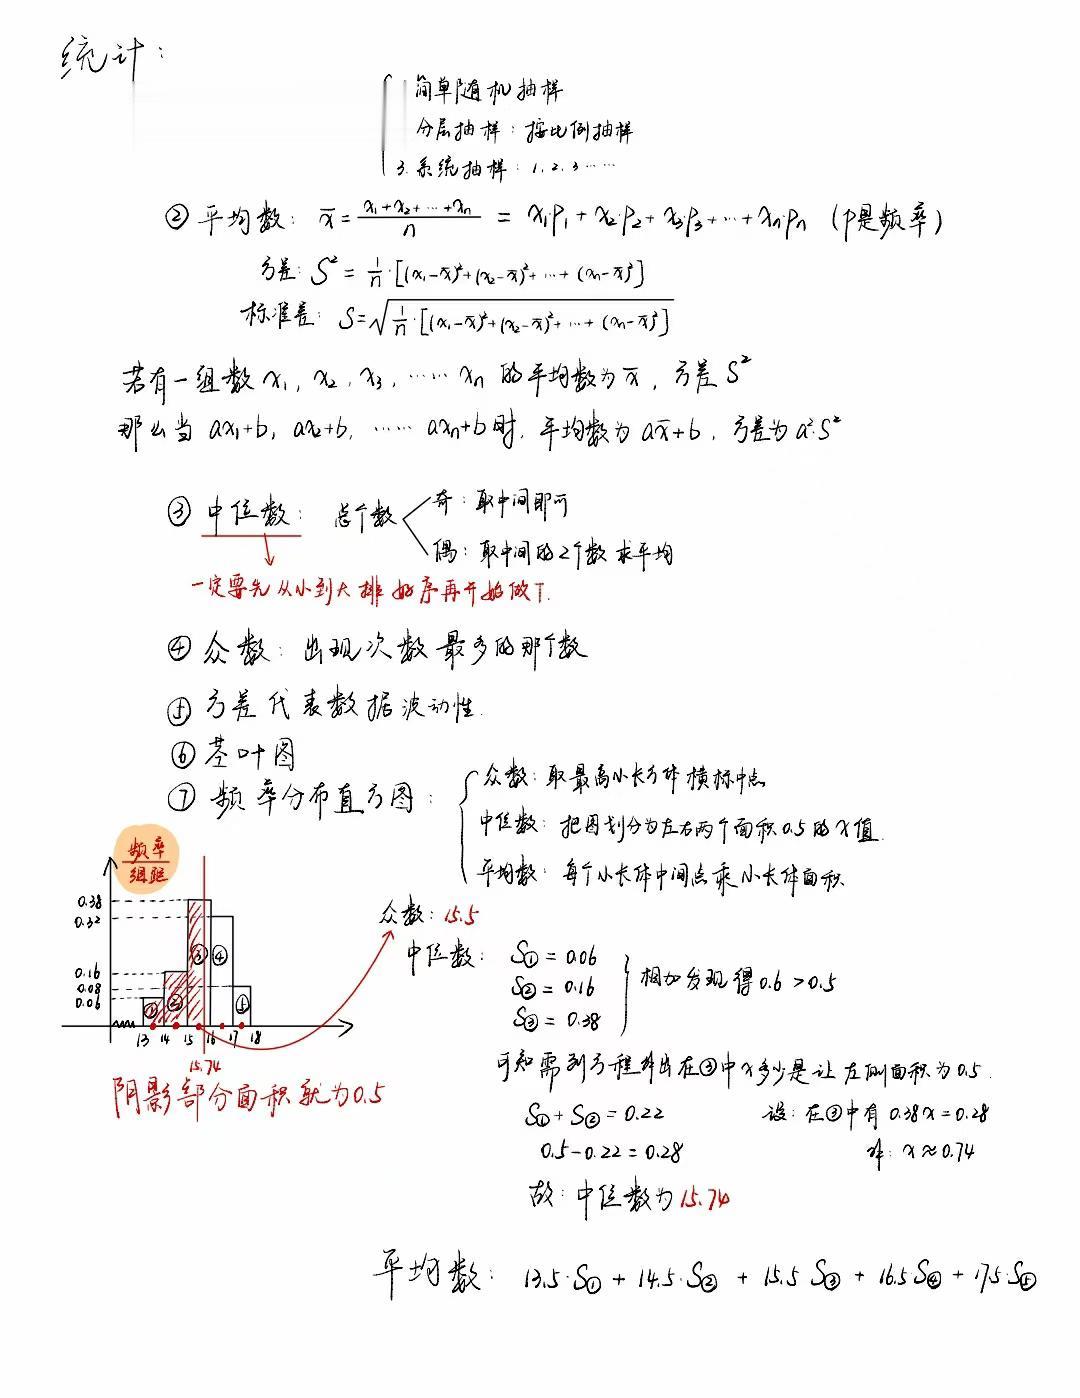 统计：
简单随机抽样
分层抽样：按比例抽样
3.系统抽样：1.2.3……
② 平均数：x̄ = (x₁+x₂+…+xₙ)/n = x₁·p₁+x₂·p₂+x₃·p₃+…+xₙ·pₙ （p是频率）
方差：S² = 1/n·[(x₁-x̄)²+(x₂-x̄)²+…+(xₙ-x̄)²]
标准差：S=√(1/n·[(x₁-x̄)²+(x₂-x̄)²+…+(xₙ-x̄)²])
若有一组数 x₁, x₂, x₃, …… xₙ 的平均数为 x̄，方差 S²
那么当 ax₁+b, ax₂+b, …… axₙ+b时，平均数为 ax̄+b，方差为 a²·S²
③ 中位数：总个数
奇：取中间即可
偶：取中间的2个数 求平均
一定要先从小到大排好序再开始做！
④ 众数：出现次数最多的那个数
⑤ 方差代表数据波动性.
⑥ 茎叶图
⑦ 频率分布直方图：
众数：取最高小长方体横标中点
中位数：把图划分为左右两个面积0.5的X值
平均数：每个小长体中间点乘小长体面积
频率/组距
0.38
0.32
0.16
0.08
0.06
① ② ③ ④ ⑤
13 14 15 16 17 18
15.74
阴影部分面积就为0.5
众数：15.5
中位数：S① = 0.06
S② = 0.16
S③ = 0.38
相加发现得0.6>0.5
可知需列方程算出在③中x多少是让左侧面积为0.5.
S①+S② = 0.22
0.5-0.22=0.28
设：在③中有 0.38x=0.28
解：x≈0.74
故：中位数为15.74
平均数：13.5·S① + 14.5·S② + 15.5 S③ + 16.5 S④ + 17.5·S⑤